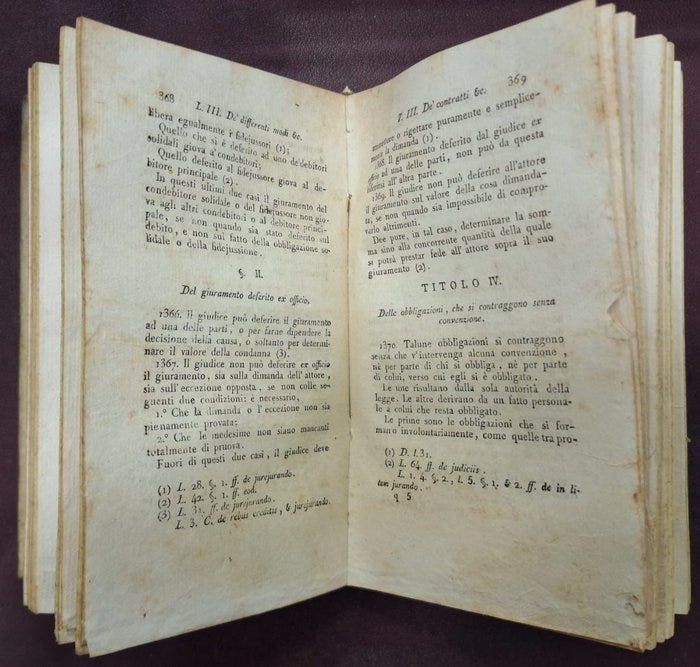 368
L. III. De' differenti modi &c.
libera egualmente i fidejussori (1);
Quello che si è deferito ad uno de' debitori
solidali giova a' condebitori;
Quello deferito al fidejussore giova al de-
bitore principale (2).
In questi ultimi due casi il giuramento del
condebitore solidale o del fidejussore non gio-
va agli altri condebitori o al debitore princi-
pale, se non quando sia stato deferito sul
debito, e non sul fatto della obbligazione so-
lidale o della fidejussione.
§. II.
Del giuramento deferito ex officio.
1366. Il giudice può deferire il giuramento
ad una delle parti, o per farne dipendere la
decisione della causa, o soltanto per determi-
nare il valore della condanna (3).
1367. Il giudice non può deferire ex officio
il giuramento, sia sulla dimanda dell'attore,
sia sull'eccezione opposta, se non colle se-
guenti due condizioni: è necessario,
1.° Che la dimanda o l'eccezione non sia
pienamente provata;
2.° Che le medesime non siano mancanti
totalmente di pruova.
Fuori di questi due casi, il giudice deve
(1) L. 28. §. 1. ff. de jurejurando.
(2) L. 42. §. 1. ff. eod.
(3) L. 31. ff. de jurejurando.
L. 3. C. de rebus creditis, & jurejurando.
369
T. III. De' contratti &c.
o rigettare puramente e semplice-
mente la dimanda (1).
1368. Il giuramento deferito dal giudice ex
officio ad una delle parti, non può da questa
riferirsi all'altra parte.
1369. Il giudice non può deferire all'attore
il giuramento sul valore della cosa dimanda-
ta, se non quando sia impossibile di compro-
varlo altrimenti.
Dee pure, in tal caso, determinare la som-
ma sino alla concorrente quantità della quale
si potrà prestar fede all'attore sopra il suo
giuramento (2).
TITOLO IV.
Delle obbligazioni, che si contraggono senza
convenzione.
1370. Talune obbligazioni si contraggono
senza che v'intervenga alcuna convenzione,
nè per parte di chi si obbliga, nè per parte
di colui, verso cui egli si è obbligato.
Le une risultano dalla sola autorità della
legge. Le altre derivano da un fatto persona-
le a colui che resta obbligato.
Le prime sono le obbligazioni che si for-
mano involontariamente, come quelle tra pro-
(1) D. l. 31.
(2) L. 64. ff. de judiciis.
L. 1. 4. §. 2., l. 5. §. 1. & 2. ff. de in li-
tem jurando.
q 5